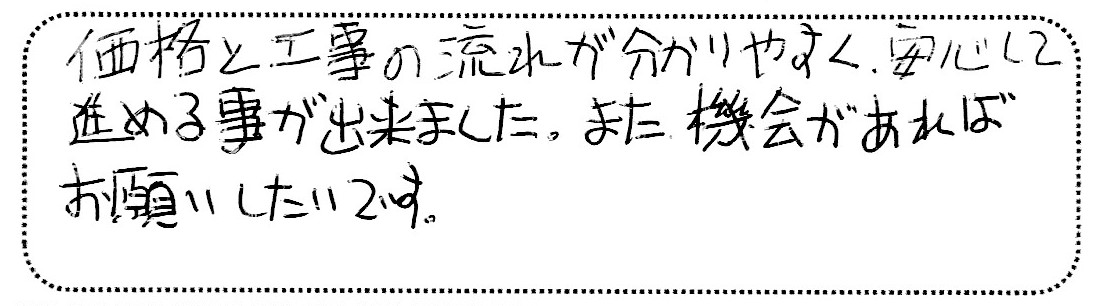 価格と工事の流れが分かりやすく、安心して
進める事が出来ました。また機会があれば
お願いしたいです。